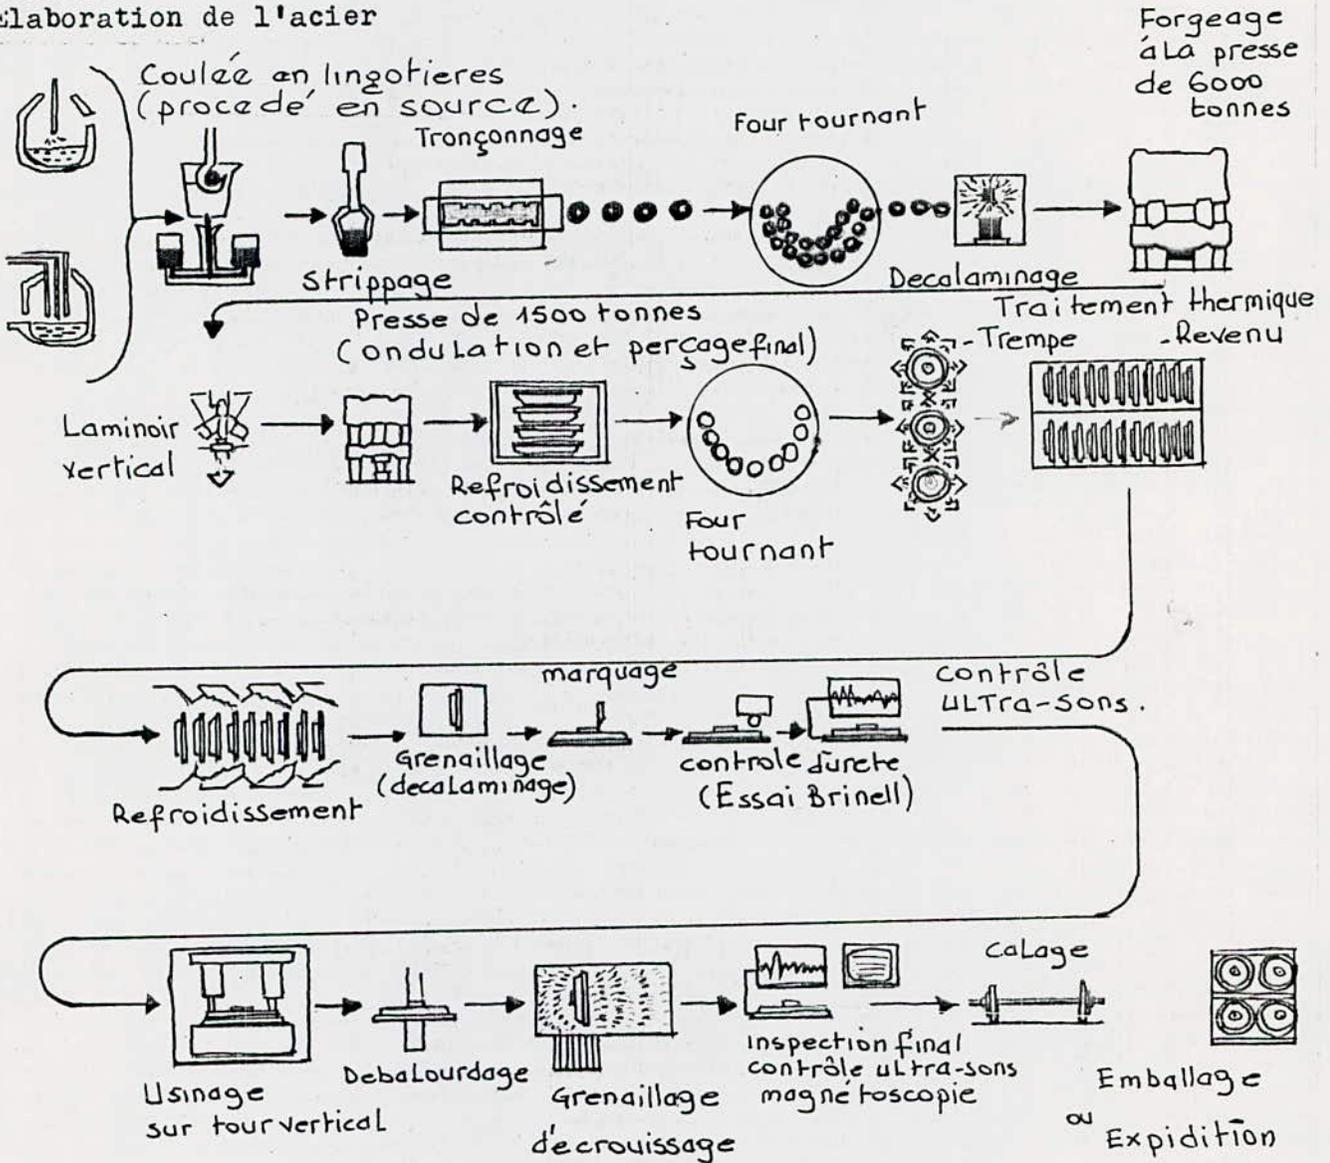 Elaboration de l'acier
Coulée en lingotieres
(procedé en source).
Strippage
Tronçonnage
Four tournant
Decalaminage
Forgeage
à La presse
de 6000
tonnes
Laminoir
vertical
Presse de 1500 tonnes
(ondulation et perçage final)
Refroidissement
contrôlé
Four
tournant
Traitement thermique
-Trempe -Revenu
Refroidissement
Grenaillage
(decalaminage)
marquage
controle durete
(Essai Brinell)
contrôle
ULTra-sons.
Usinage
sur tour vertical
Debalourdage
Grenaillage
d'ecrouissage
inspection final
contrôle ultra-sons
magnétoscopie
calage
Emballage
ou
Expidition